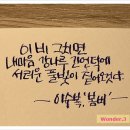 이 비 그치면
내마음 강나루 긴 언덕에
서러운 풀빛이 짙어오것다
- 이수복, '봄비' -
Wonder.J